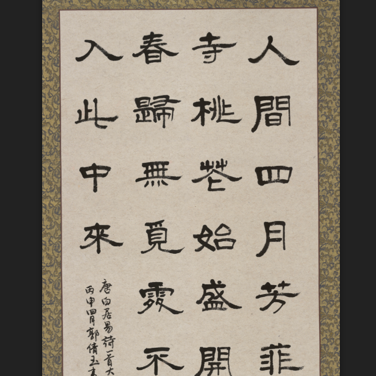 人間四月芳菲
寺桃花始盛開
春歸無覓處不
入此中來
唐白居易詩一首大
丙申四月郭倩玉